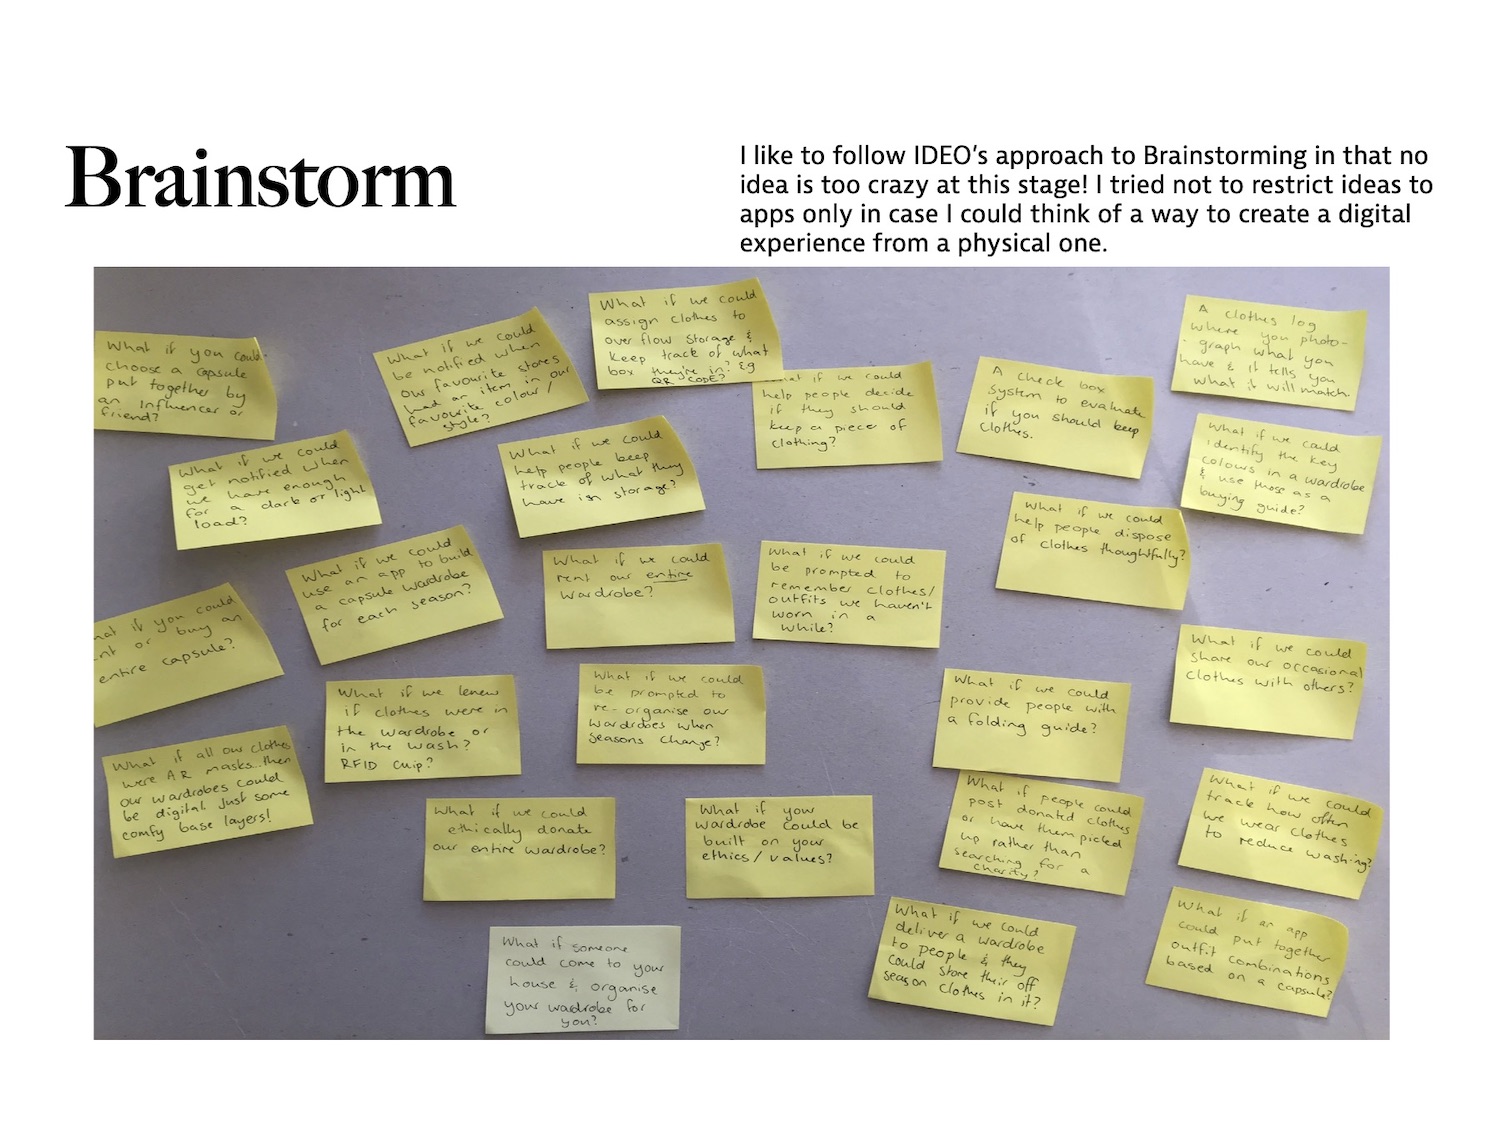 Brainstorm
I like to follow IDEO's approach to Brainstorming in that no
idea is too crazy at this stage! I tried not to restrict ideas to
apps only in case I could think of a way to create a digital
experience from a physical one.
What if you could
choose a capsule
put together by
an influencer or
friend?
What if we could
be notified when
our favourite stores
had an item in our
favourite colour/
style?
What if we could
assign clothes to
over flow storage &
keep track of what
box they're in? Eg
QR CODE?
if we could
help people decide
if they should
keep a piece of
clothing?
A check box
system to evaluate
if you should keep
clothes.
A clothes log
where you photo-
-graph what you
have & it tells you
what it will match.
What if we could
get notified when
we have enough
for a dark or light
load?
What if we could
help people keep
track of what they
have in storage?
What if we could
identify the key
colours in a wardrobe
& use those as a
buying guide?
What if we could
help people dispose
of clothes thoughtfully?
What if we could
use an app to build
a capsule wardrobe
for each season?
What if we could
rent our entire
wardrobe?
What if we could
be prompted to
remember clothes/
outfits we haven't
worn in a
while?
if you could
or buy an
entire capsule?
What if we could
share our occasional
clothes with others?
What if we knew
if clothes were in
the wardrobe or
in the wash?
RFID chip?
What if we could
be prompted to
re-organise our
wardrobes when
seasons change?
What if we could
provide people with
a folding guide?
What if all our clothes
were AR masks..then
our wardrobes could
be digital. Just some
comfy base layers!
What if we could
ethically donate
our entire wardrobe?
What if your
wardrobe could be
built on your
ethics/values?
What if people could
post donated clothes
or have them picked
up rather than
searching for a
charity?
What if we could
track how often
we wear clothes
to reduce washing?
What if someone
could come to your
house & organise
your wardrobe for
you?
What if we could
deliver a wardrobe
to people & they
could store their off
season clothes in it?
What if an app
could put together
outfit combinations
based on a capsule?